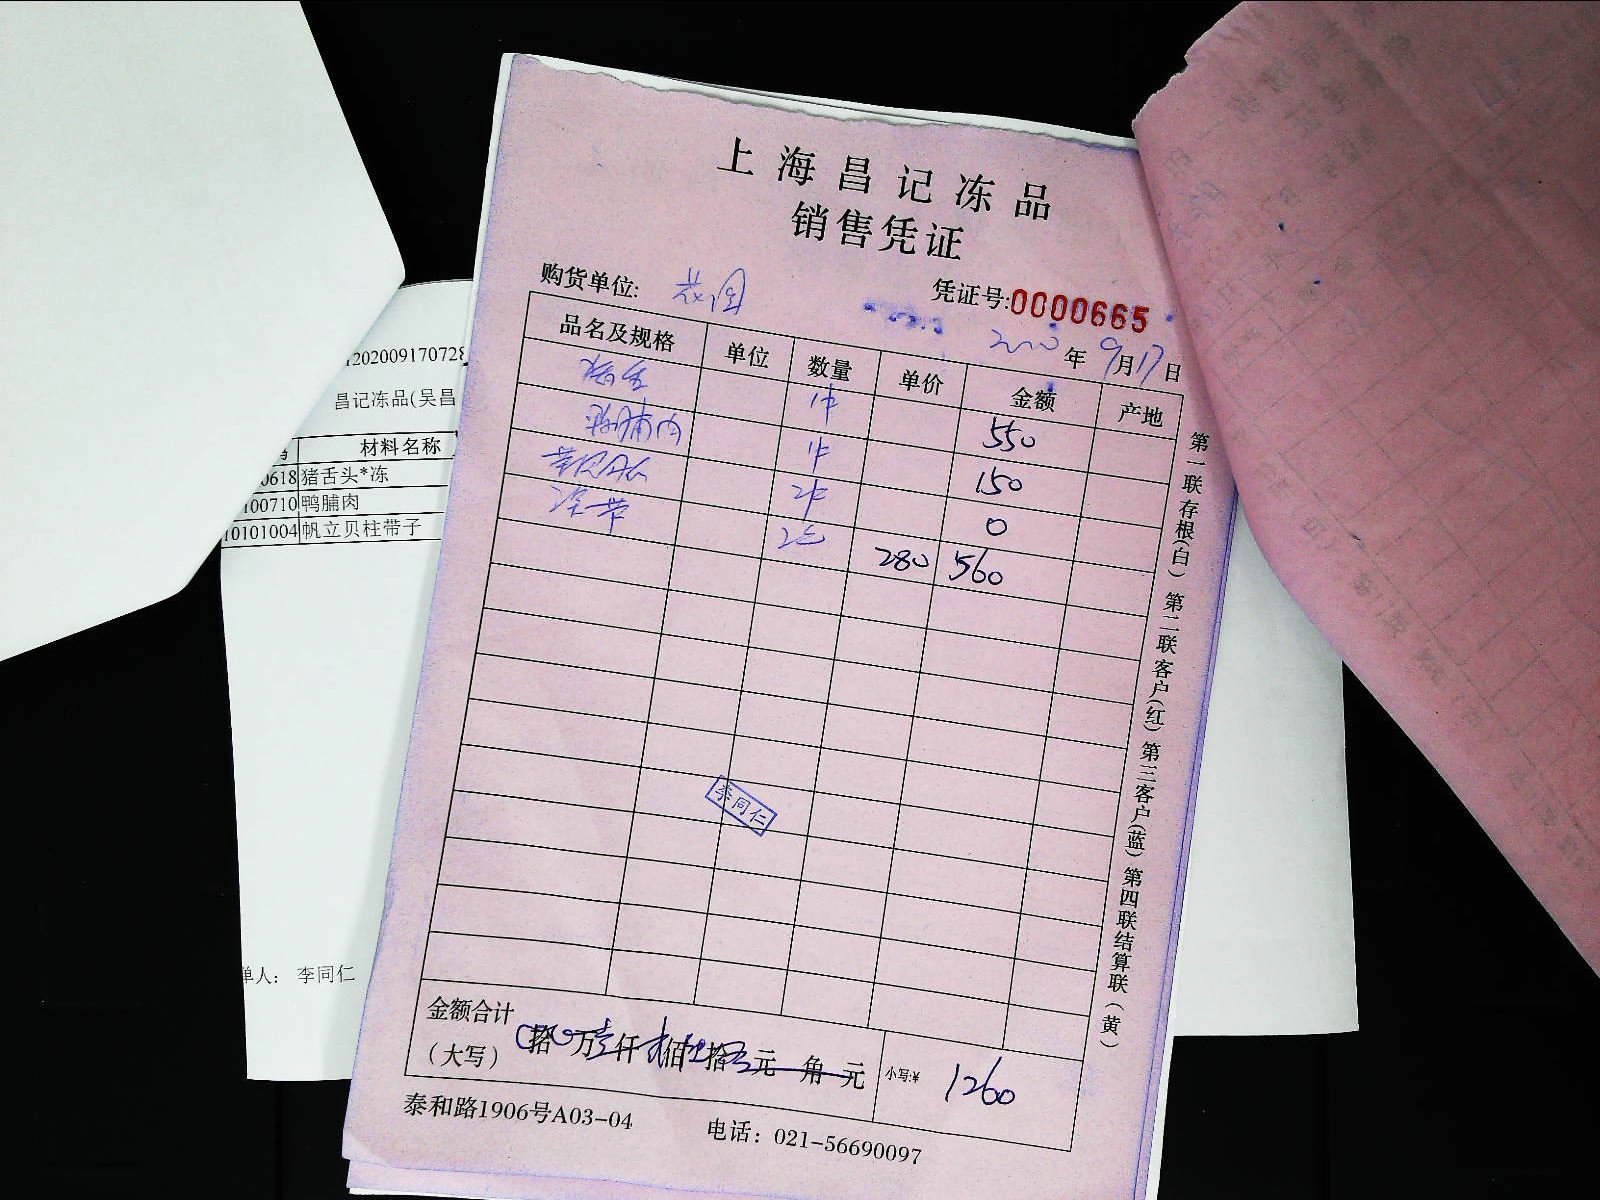 上海昌记冻品
销售凭证
购货单位: 花园 凭证号:0000665
2020年9月17日
品名及规格 单位 数量 单价 金额 产地
猪舌 1件 550
鸭脯肉 1件 150
2件 0
2包 280 560
李同仁
金额合计
(大写) 拾 万壹仟贰佰 拾 元 角 元 小写:¥ 1260
泰和路1906号A03-04 电话: 021-56690097
第一联存根(白) 第二联客户(红) 第三客户(蓝) 第四联结算联(黄)
120200917072
昌记冻品(吴昌
材料名称
0618 猪舌头*冻
100710 鸭脯肉
10101004 帆立贝柱带子
单人: 李同仁